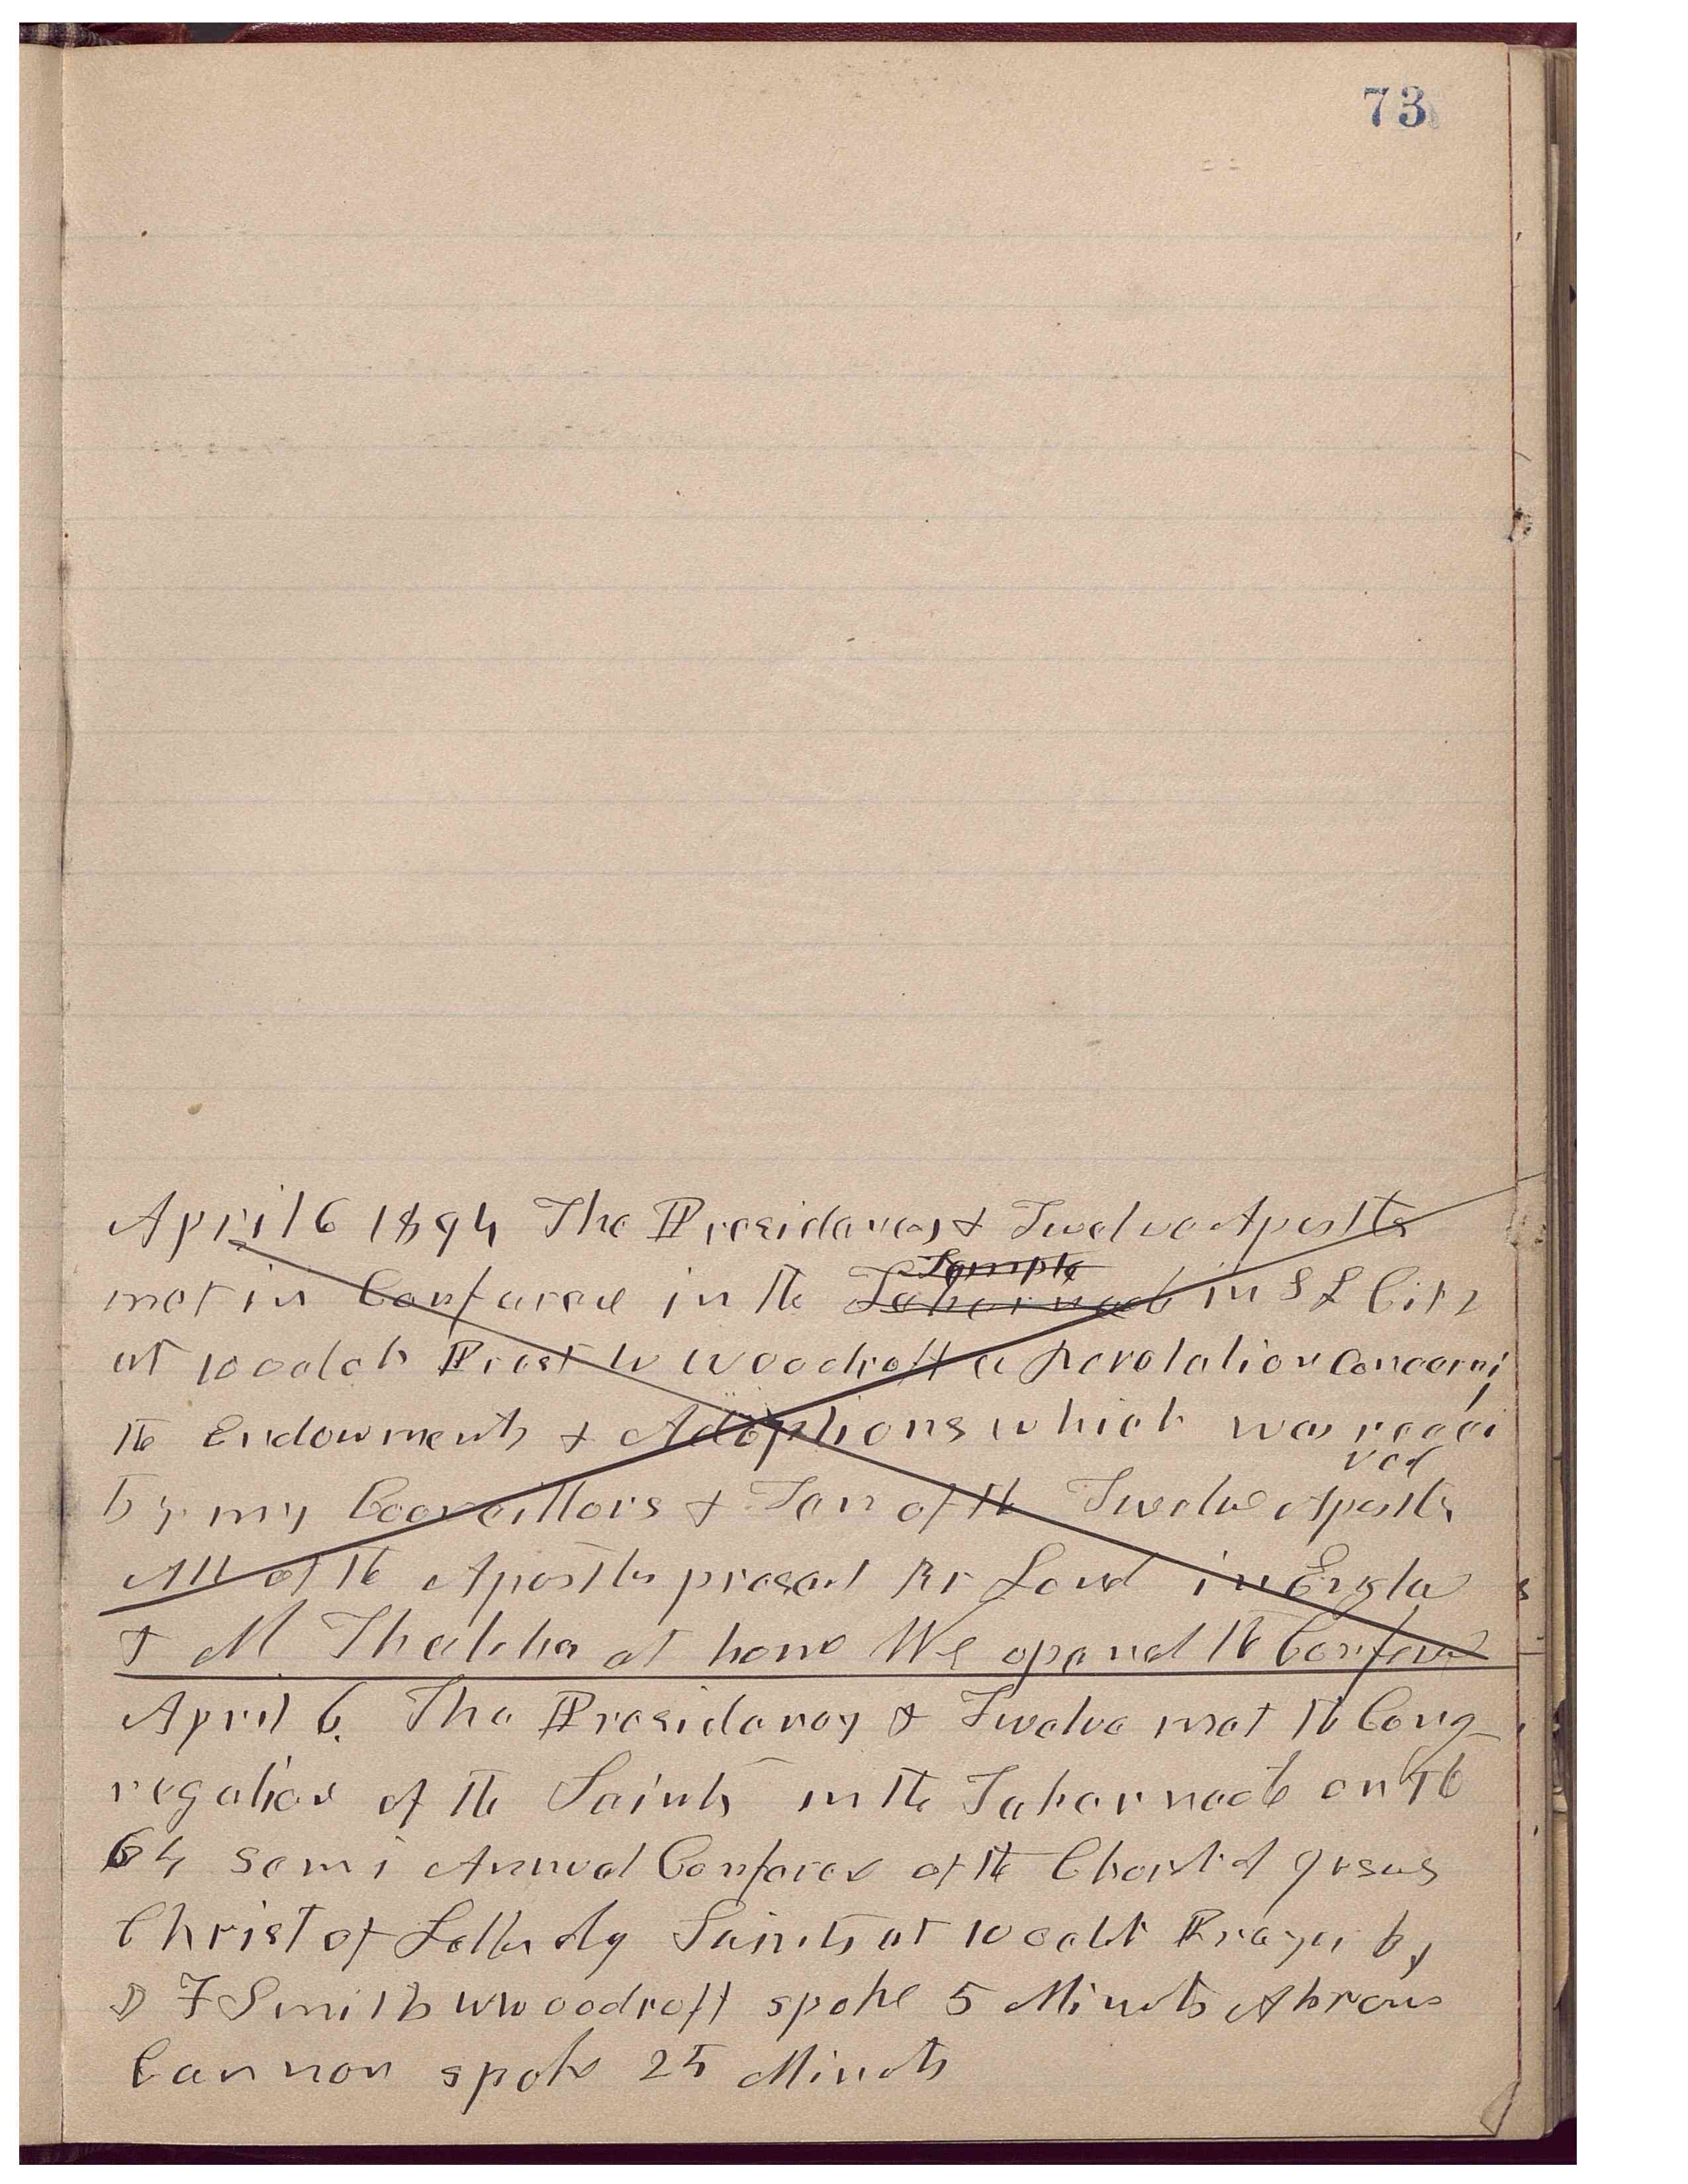 73
April 6 1894 The Presidency & Twelve Apostls
Temple
met in Confarence in the Tabernacle in S L City
at 10 oclok Prest W Woodruff a Revelation Concerni
the Endowments & Adoptions which was recei
ved
by my Councillors & Ten of the Twelve Apostls
All of the Apostles present Br Lund in Engla
& M Thatcher at home We opened the Confere
April 6. The Presidency & Twelve met the Cong
regation of the Saints in the Tabernacle on the
64 Semi Annual Conference of the Church of Jesus
Christ of Latter day Saints at 10 oclok Prayer by
J F Smith W Woodruff spoke 5 Minuts Abram
Cannon spoke 25 Minuts